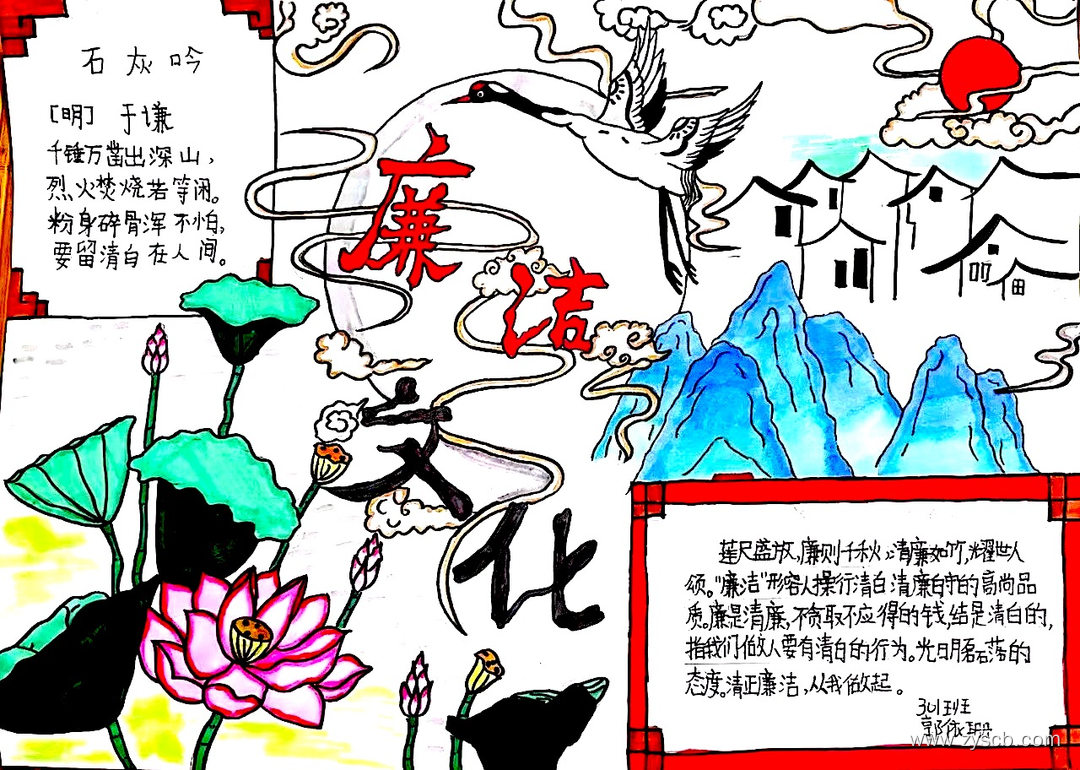 石灰吟
[明] 于谦
千锤万凿出深山，
烈火焚烧若等闲。
粉身碎骨浑不怕，
要留清白在人间。
廉洁
文化
莲尺盛放，廉则千秋，清廉如竹，耀世人
颂。"廉洁"形容人操行清白清廉自守的高尚品
质。廉是清廉，不贪取不应得的钱，结是清白的，
指我们做人要有清白的行为。光明磊落的
态度。清正廉洁，从我做起。
301班
郭依珊
www.zyscb.com